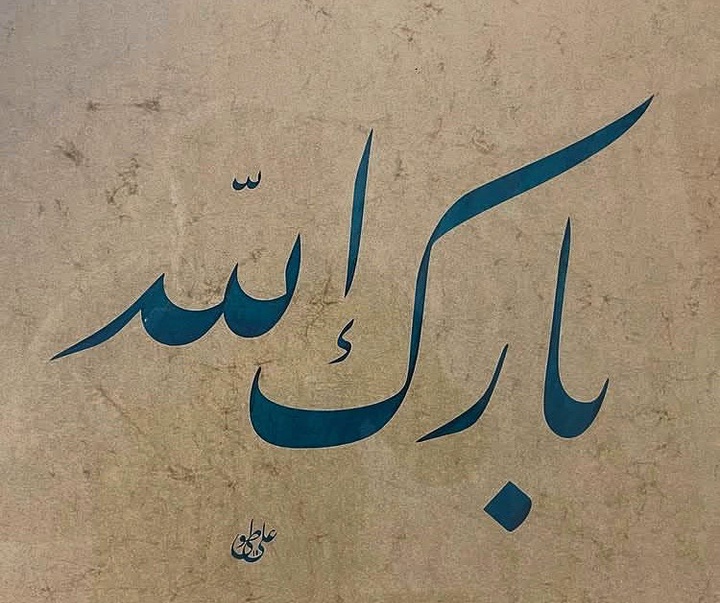 بارك الله
علي طه